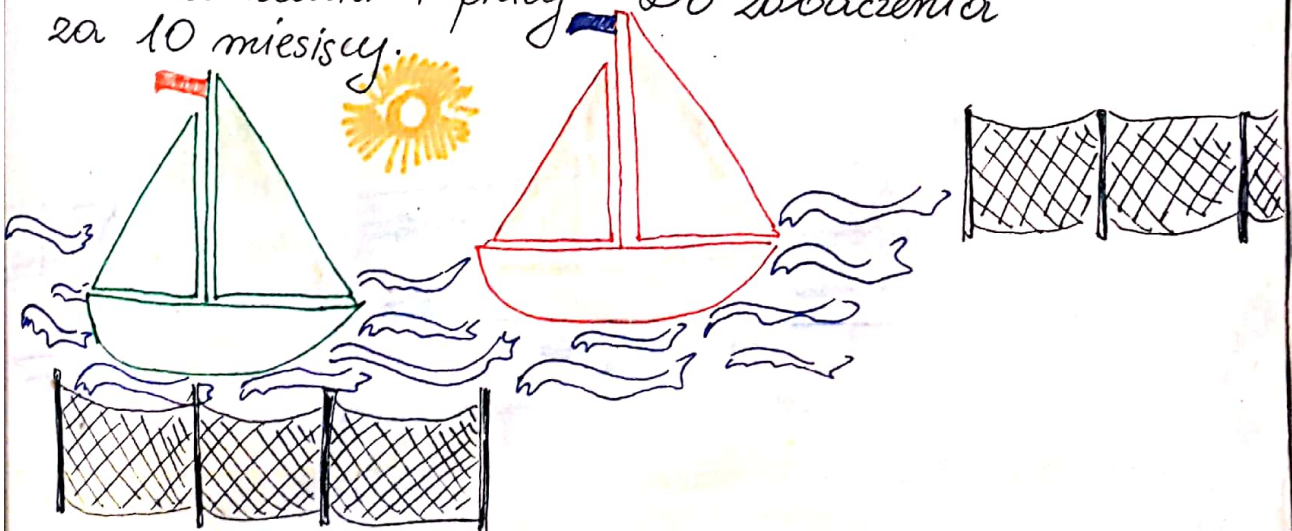 i pracy Do zobaczenia
za 10 miesięcy.